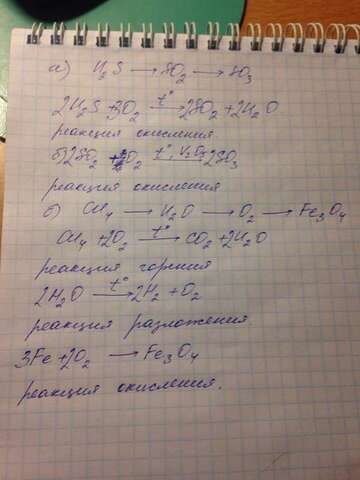 а) H₂S → SO₂ → SO₃
2H₂S + 3O₂ —t°→ 2SO₂ + 2H₂O
реакция окисления
б) 2SO₂ + O₂ —t°, V₂O₅→ 2SO₃
реакция окисления
б) CH₄ → H₂O → O₂ → Fe₃O₄
CH₄ + 2O₂ —t°→ CO₂ + 2H₂O
реакция горения
2H₂O —t°→ 2H₂ + O₂
реакция разложения
3Fe + 2O₂ → Fe₃O₄
реакция окисления.